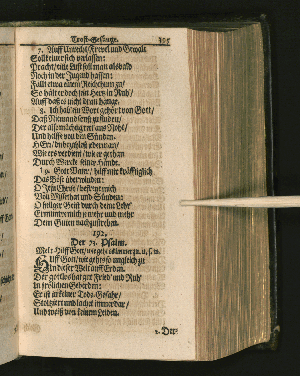 Trost-Gesänge. 395
7. Auff Unrecht/Frevel und Gewalt
Soll keiner sich verlassen:
Pracht/ eitle Lust soll man alsbald
Noch in der Jugend hassen:
Fällt etwa einem Reichthum zu/
So halt er doch sein Herz in Ruh/
Auff daß es nicht dran hange.
8. Ich hab ein Wort gehört von Gott/
Daß Niemand sonst zu finden/
Der allmächtig rett aus Noht/
Und helffe von den Sünden.
HErr/ du bezahlest jederman/
Wie ers verdient/ wie er gethan
Durch Wercke seiner Hände.
9. Gott Vater/ hilff mir kräfftiglich
Das Böst überwinden:
O JEsu Christ/ befreye mich
Von Missethat und Sünden:
O heilger Geist durch deine Lehr
Ermuntre mich je mehr und mehr
Dem Guten nachzustreben.
192.
Der 73. Psalm.
Mel: Hilff Gott/ wie geht es immer zu, u, s. w.
Hilff Gott/ wie geht's so ungleich zu
In dieser Welt auff Erden.
Der gottlos hat gut Fried' und Ruh/
In frölichen Geberden:
Er ist in keiner Tods-Gefahr/
Stolziert und lachet immerdar/
Und weiß von keinem Leiden.
2. Der